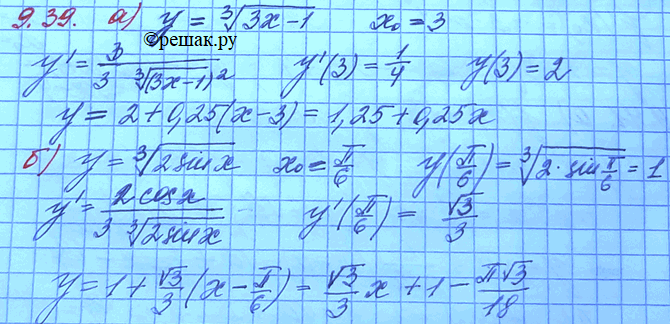 9.39. а) y = ∛(3x-1) x₀ = 3
©решак.ру
y' = 3/(3 ∛(3x-1)²) y'(3) = 1/4 y(3) = 2
y = 2 + 0,25(x-3) = 1,25 + 0,25x
б) y = ∛(2sinx) x₀ = π/6 y(π/6) = ∛(2·sin π/6) = 1
y' = 2cosx/(3 ∛(2sinx)) y'(π/6) = √3/3
y = 1 + √3/3 (x - π/6) = √3/3 x + 1 - π√3/18